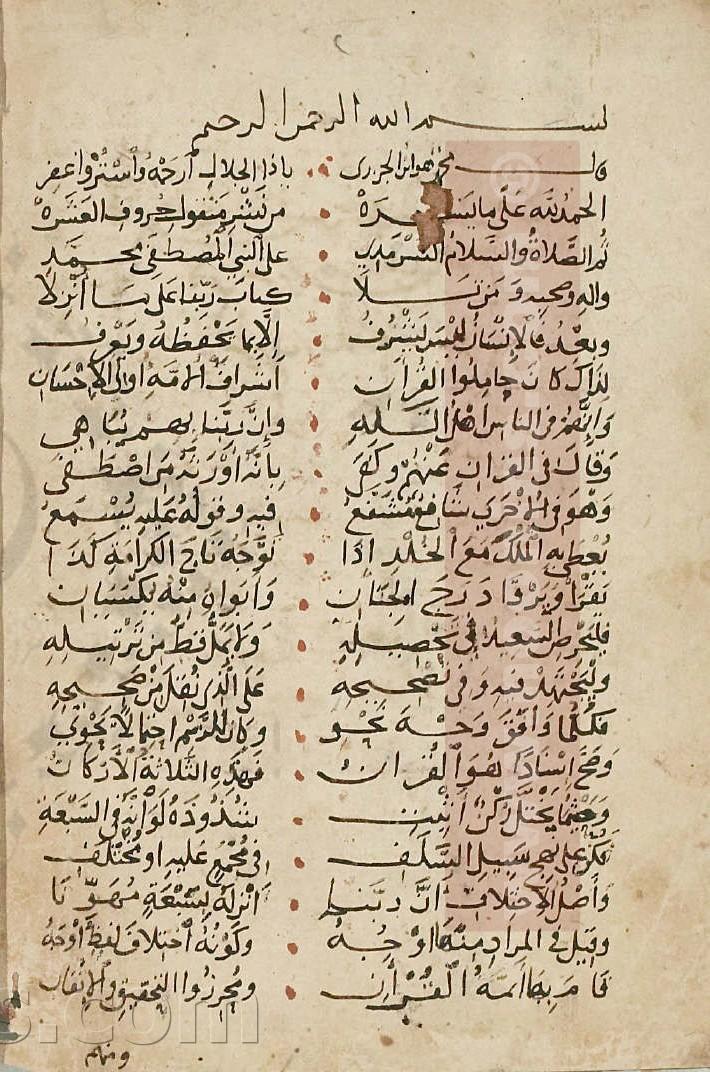 بسم الله الرحمن الرحيم
قال محمد هو ابن الجزرى ∴ ياذا الجلال ارحمه واستر واغفر
الحمد لله على ما يسره • من نشر منقول حروف العشره
ثم الصلاة والسلام السرمدي • على النبي المصطفى محمد
واله وصحبه ومن تلا • كتاب ربنا على ما أنزلا
وبعد فالإنسان ليس يشرف • إلا بما يحفظه ويعرف
لذاك كان حاملوا القرآن • أشراف الأمه أولى الإحسان
وإنهم فى الناس أهل الله • وإن ربنا بهم يباهي
وقال فى القران عنهم وكفى • بأنه أورثه من اصطفى
وهو فى الاخرى شافع مشفع • فيه وقوله عليه يسمع
يعطى به الملك مع الخلد إذا • توجه تاج الكرامة كذا
يقرأ ويرقا درج الجنان • وأبواه منه يكسيان
فليحرص السعيد في تحصيله • ولا يمل قط من ترتيله
وليجتهد فيه وفى تصحيحه • على الذي نقل من صحيحه
فكلما وافق وجه نحو • وكان للرسم احتمالا يحوي
وصح إسنادا هو القرآن • فهذه الثلاثة الأركان
وحيثما يختل ركن أثبت • شذوذه لو أنه فى السبعة
فكن على نهج سبيل السلف • فى مجمع عليه او مختلف
وأصل الاختلاف أن ربنا • أنزله بسبعة مهونا
وقيل في المراد منها أوجه • وكونه اختلاف لفظ أوجه
قام بها أئمة القرآن • ومحرزوا التحقيق والإتقان
ومنهم
s.com